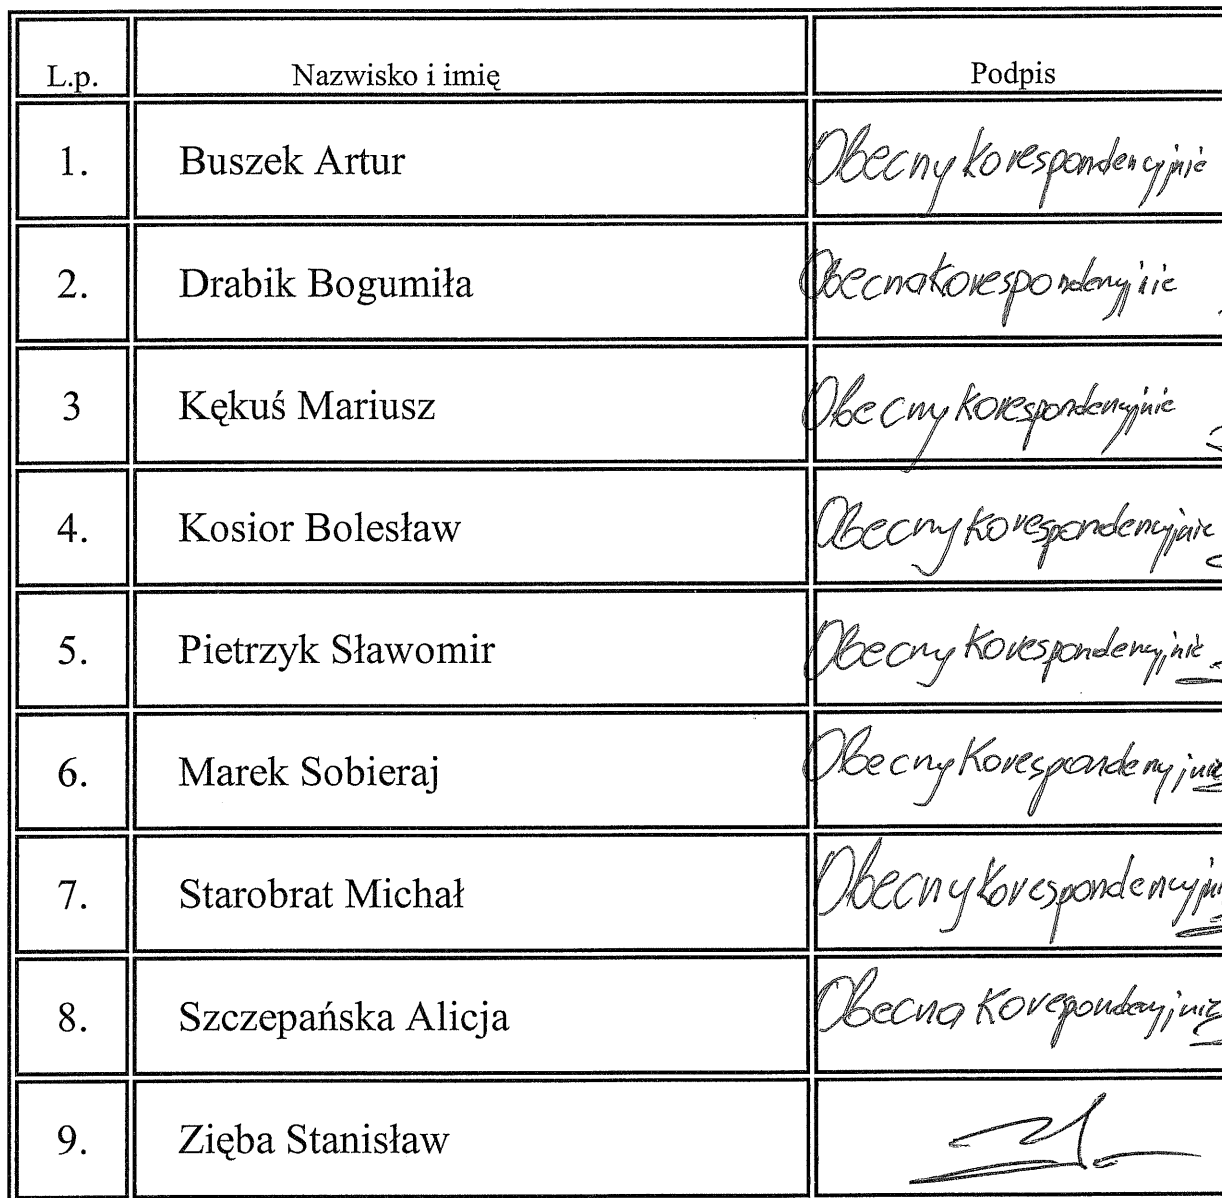 L.p. Nazwisko i imię Podpis
1. Buszek Artur Obecny korespondencyjnie
2. Drabik Bogumiła Obecna korespondencyjnie
3 Kękuś Mariusz Obecny korespondencyjnie
4. Kosior Bolesław Obecny korespondencyjnie
5. Pietrzyk Sławomir Obecny korespondencyjnie
6. Marek Sobieraj Obecny Korespondencyjnie
7. Starobrat Michał Obecny korespondencyjnie
8. Szczepańska Alicja Obecna Korespondencyjnie
9. Zięba Stanisław